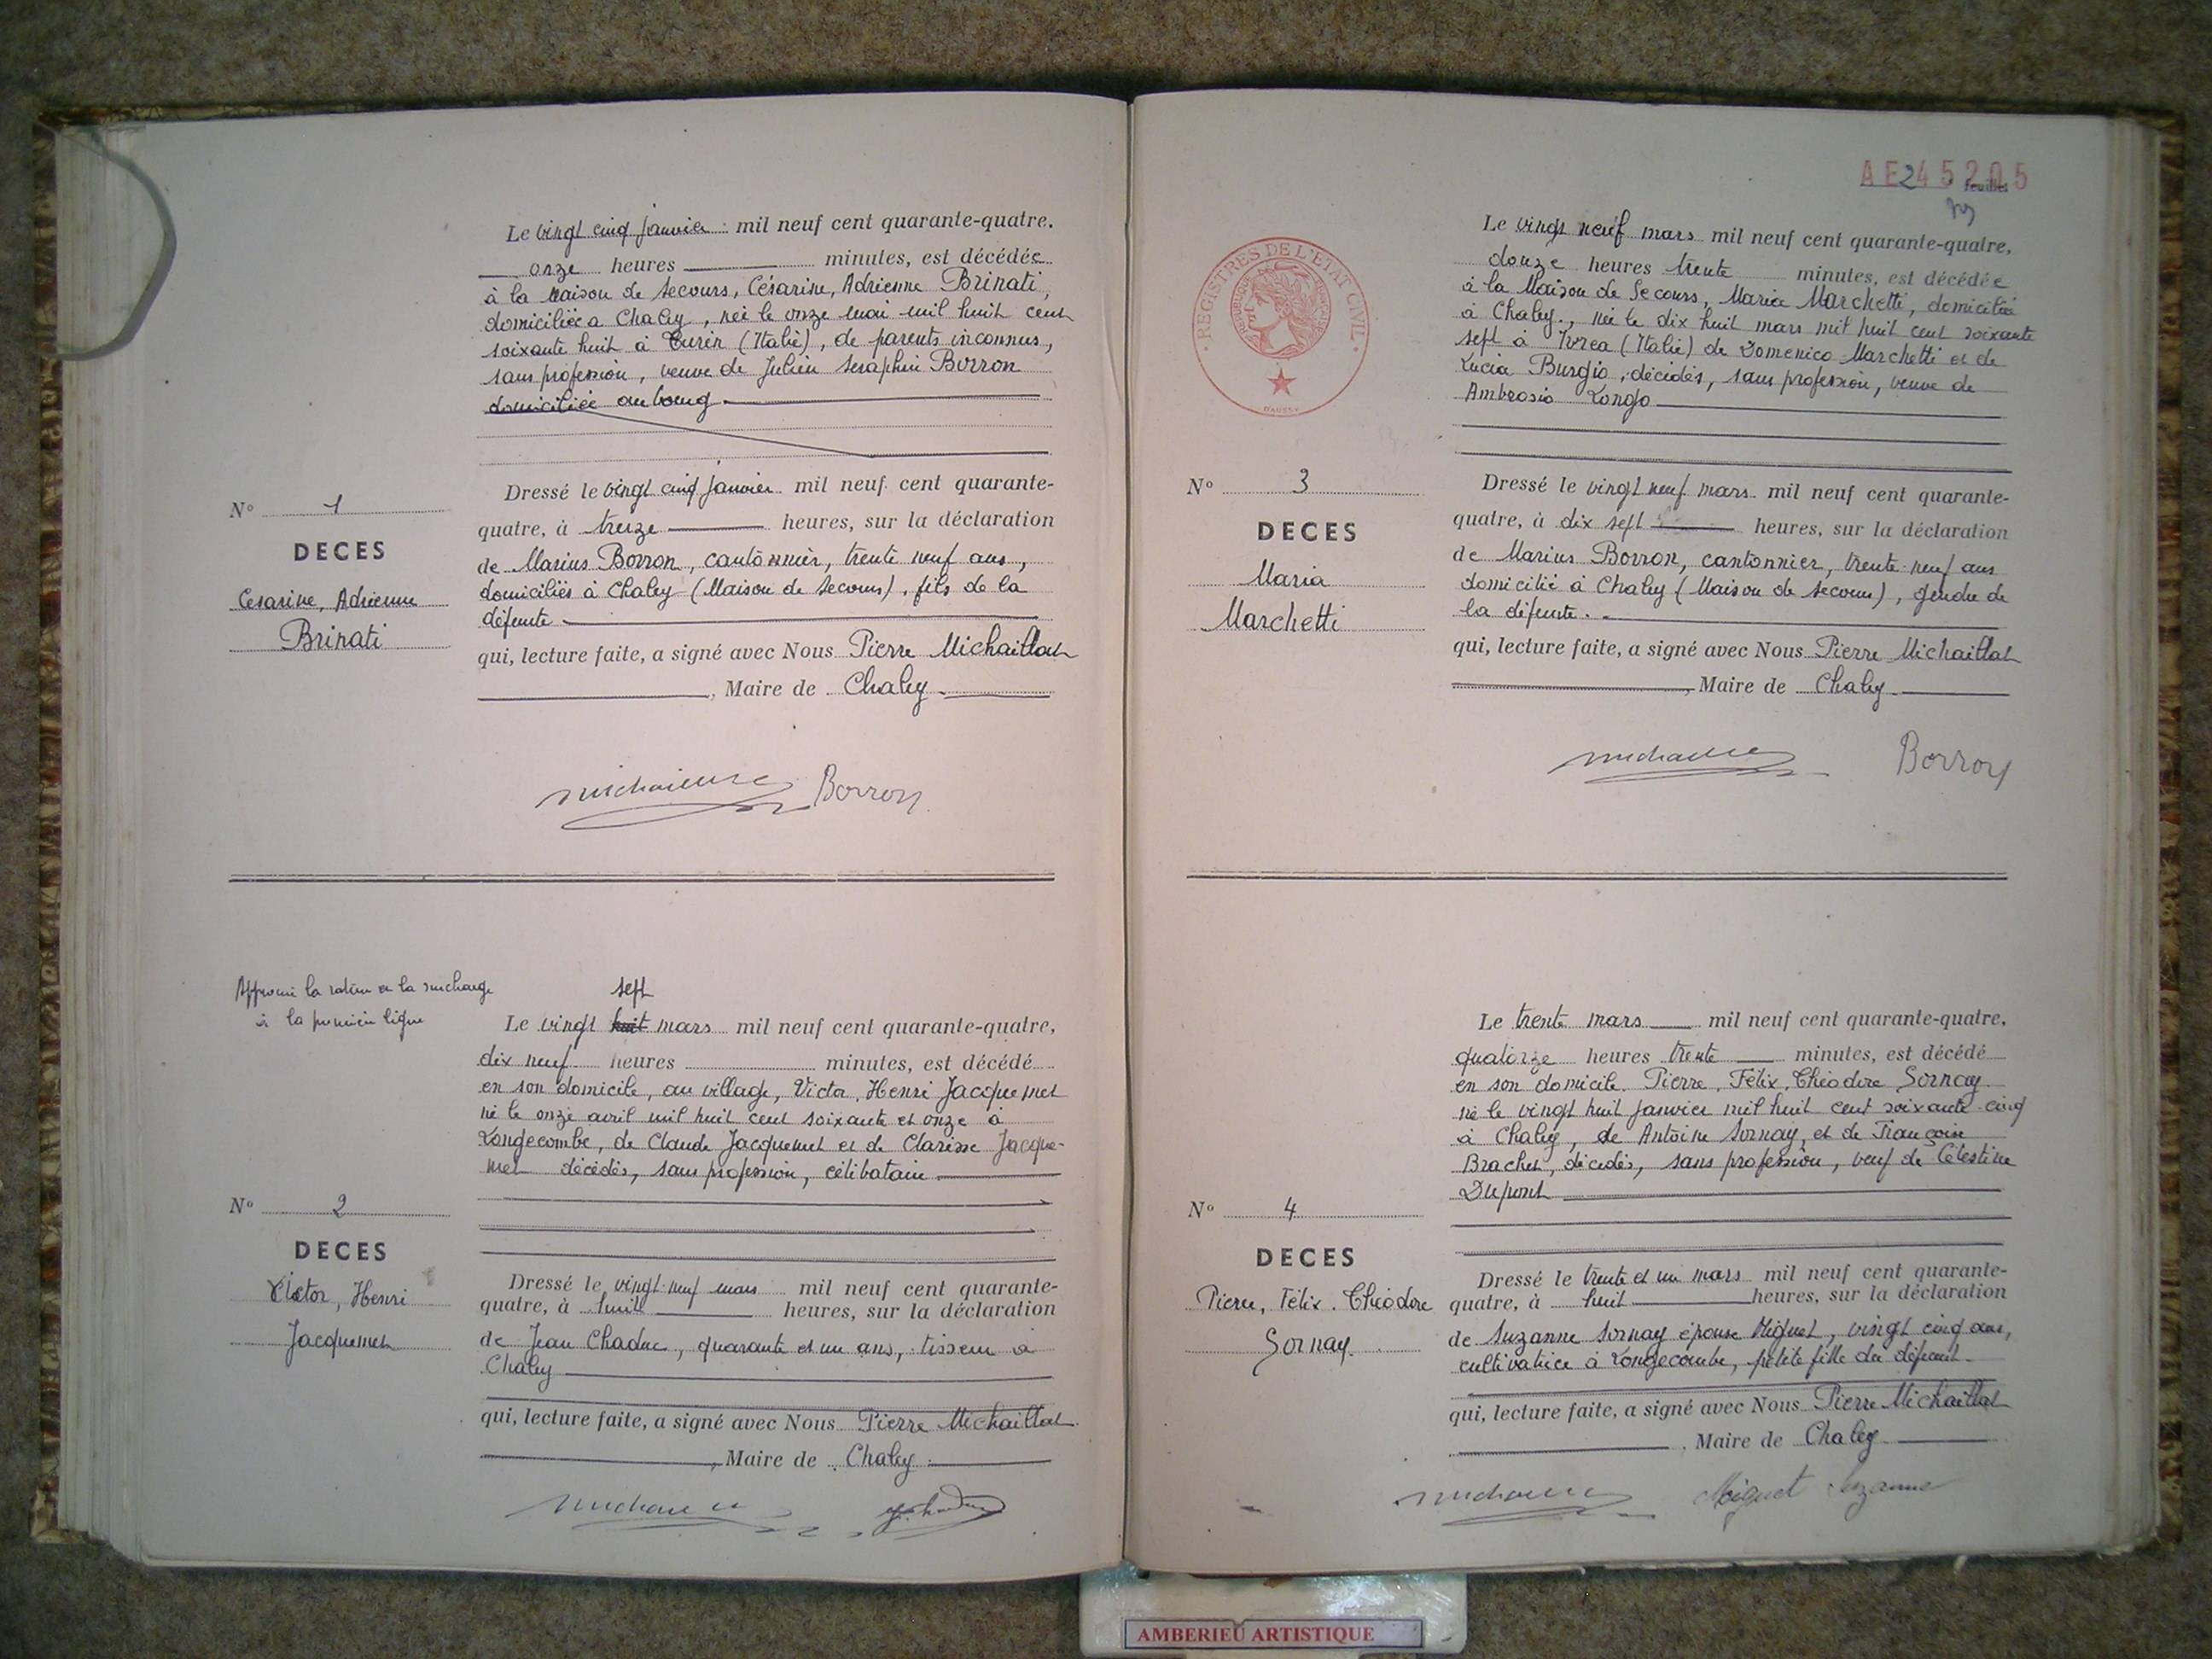 Le vingt cinq janvier mil neuf cent quarante-quatre.
onze heures minutes, est décédée
à la maison de secours, Césarine, Adrienne Brinati,
domiciliée à Chaley, née le onze mai mil huit cent
soixante huit à Turin (Italie), de parents inconnus,
sans profession, veuve de Julien Seraphin Borron
domiciliée au bourg
Nº 1
DECES
Césarine, Adrienne
Brinati
Dressé le vingt cinq janvier mil neuf cent quarante-
quatre, à treize heures, sur la déclaration
de Marius Borron, cantonnier, trente neuf ans,
domiciliés à Chaley (Maison de Secours), fils de la
défunte
qui, lecture faite, a signé avec Nous Pierre Michaillat
, Maire de Chaley
Borron
Approuvé la rature et la surcharge
à la première ligne
sept
Le vingt huit mars mil neuf cent quarante-quatre,
dix neuf heures minutes, est décédé
en son domicile, au village, Victor, Henri Jacquemet
né le onze avril mil huit cent soixante et onze à
Longecombe, de Claude Jacquemet et de Clarisse Jacque-
met décédés, sans profession, célibataire
Nº 2
DECES
Victor, Henri
Jacquemet
Dressé le vingt-neuf mars mil neuf cent quarante-
quatre, à huit heures, sur la déclaration
de Jean Chaduc, quarante et un ans, tisseur à
Chaley
qui, lecture faite, a signé avec Nous Pierre Michaillat
, Maire de Chaley
AE245205
feuilles
REGISTRES DE L'ETAT CIVIL
Le vingt neuf mars mil neuf cent quarante-quatre,
douze heures trente minutes, est décédée
à la Maison de Secours, Maria Marchetti, domiciliée
à Chaley, née le dix huit mars mil huit cent soixante
sept à Ivrea (Italie) de Domenico Marchetti et de
Lucia Burgio, décédés, sans profession, veuve de
Ambrosio Longo
Nº 3
DECES
Maria
Marchetti
Dressé le vingt neuf mars mil neuf cent quarante-
quatre, à dix sept heures, sur la déclaration
de Marius Borron, cantonnier, trente-neuf ans
domicilié à Chaley (Maison de secours), gendre de
la défunte.
qui, lecture faite, a signé avec Nous Pierre Michaillat
, Maire de Chaley
Borron
Le trente mars mil neuf cent quarante-quatre,
quatorze heures trente minutes, est décédé
en son domicile Pierre, Félix, Théodore Sornay
né le vingt huit janvier mil huit cent soixante-cinq
à Chaley, de Antoine Sornay, et de Françoise
Brachet, décédés, sans profession, veuf de Célestine
Dupont
Nº 4
DECES
Pierre, Félix, Théodore
Sornay
Dressé le trente et un mars mil neuf cent quarante-
quatre, à huit heures, sur la déclaration
de Suzanne Sornay épouse Miguet, vingt cinq ans,
cultivatrice à Longecombe, petite fille du défunt
qui, lecture faite, a signé avec Nous Pierre Michaillat
, Maire de Chaley
Miguet Suzanne
AMBERIEU ARTISTIQUE